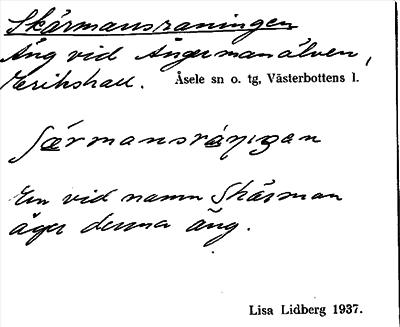 Skärmansraningen
Äng vid Ångermanälven,
Erikshall. Åsele sn o. tg, Västerbottens l.
En vid namn Skärman
äger denna äng.
Lisa Lidberg 1937.